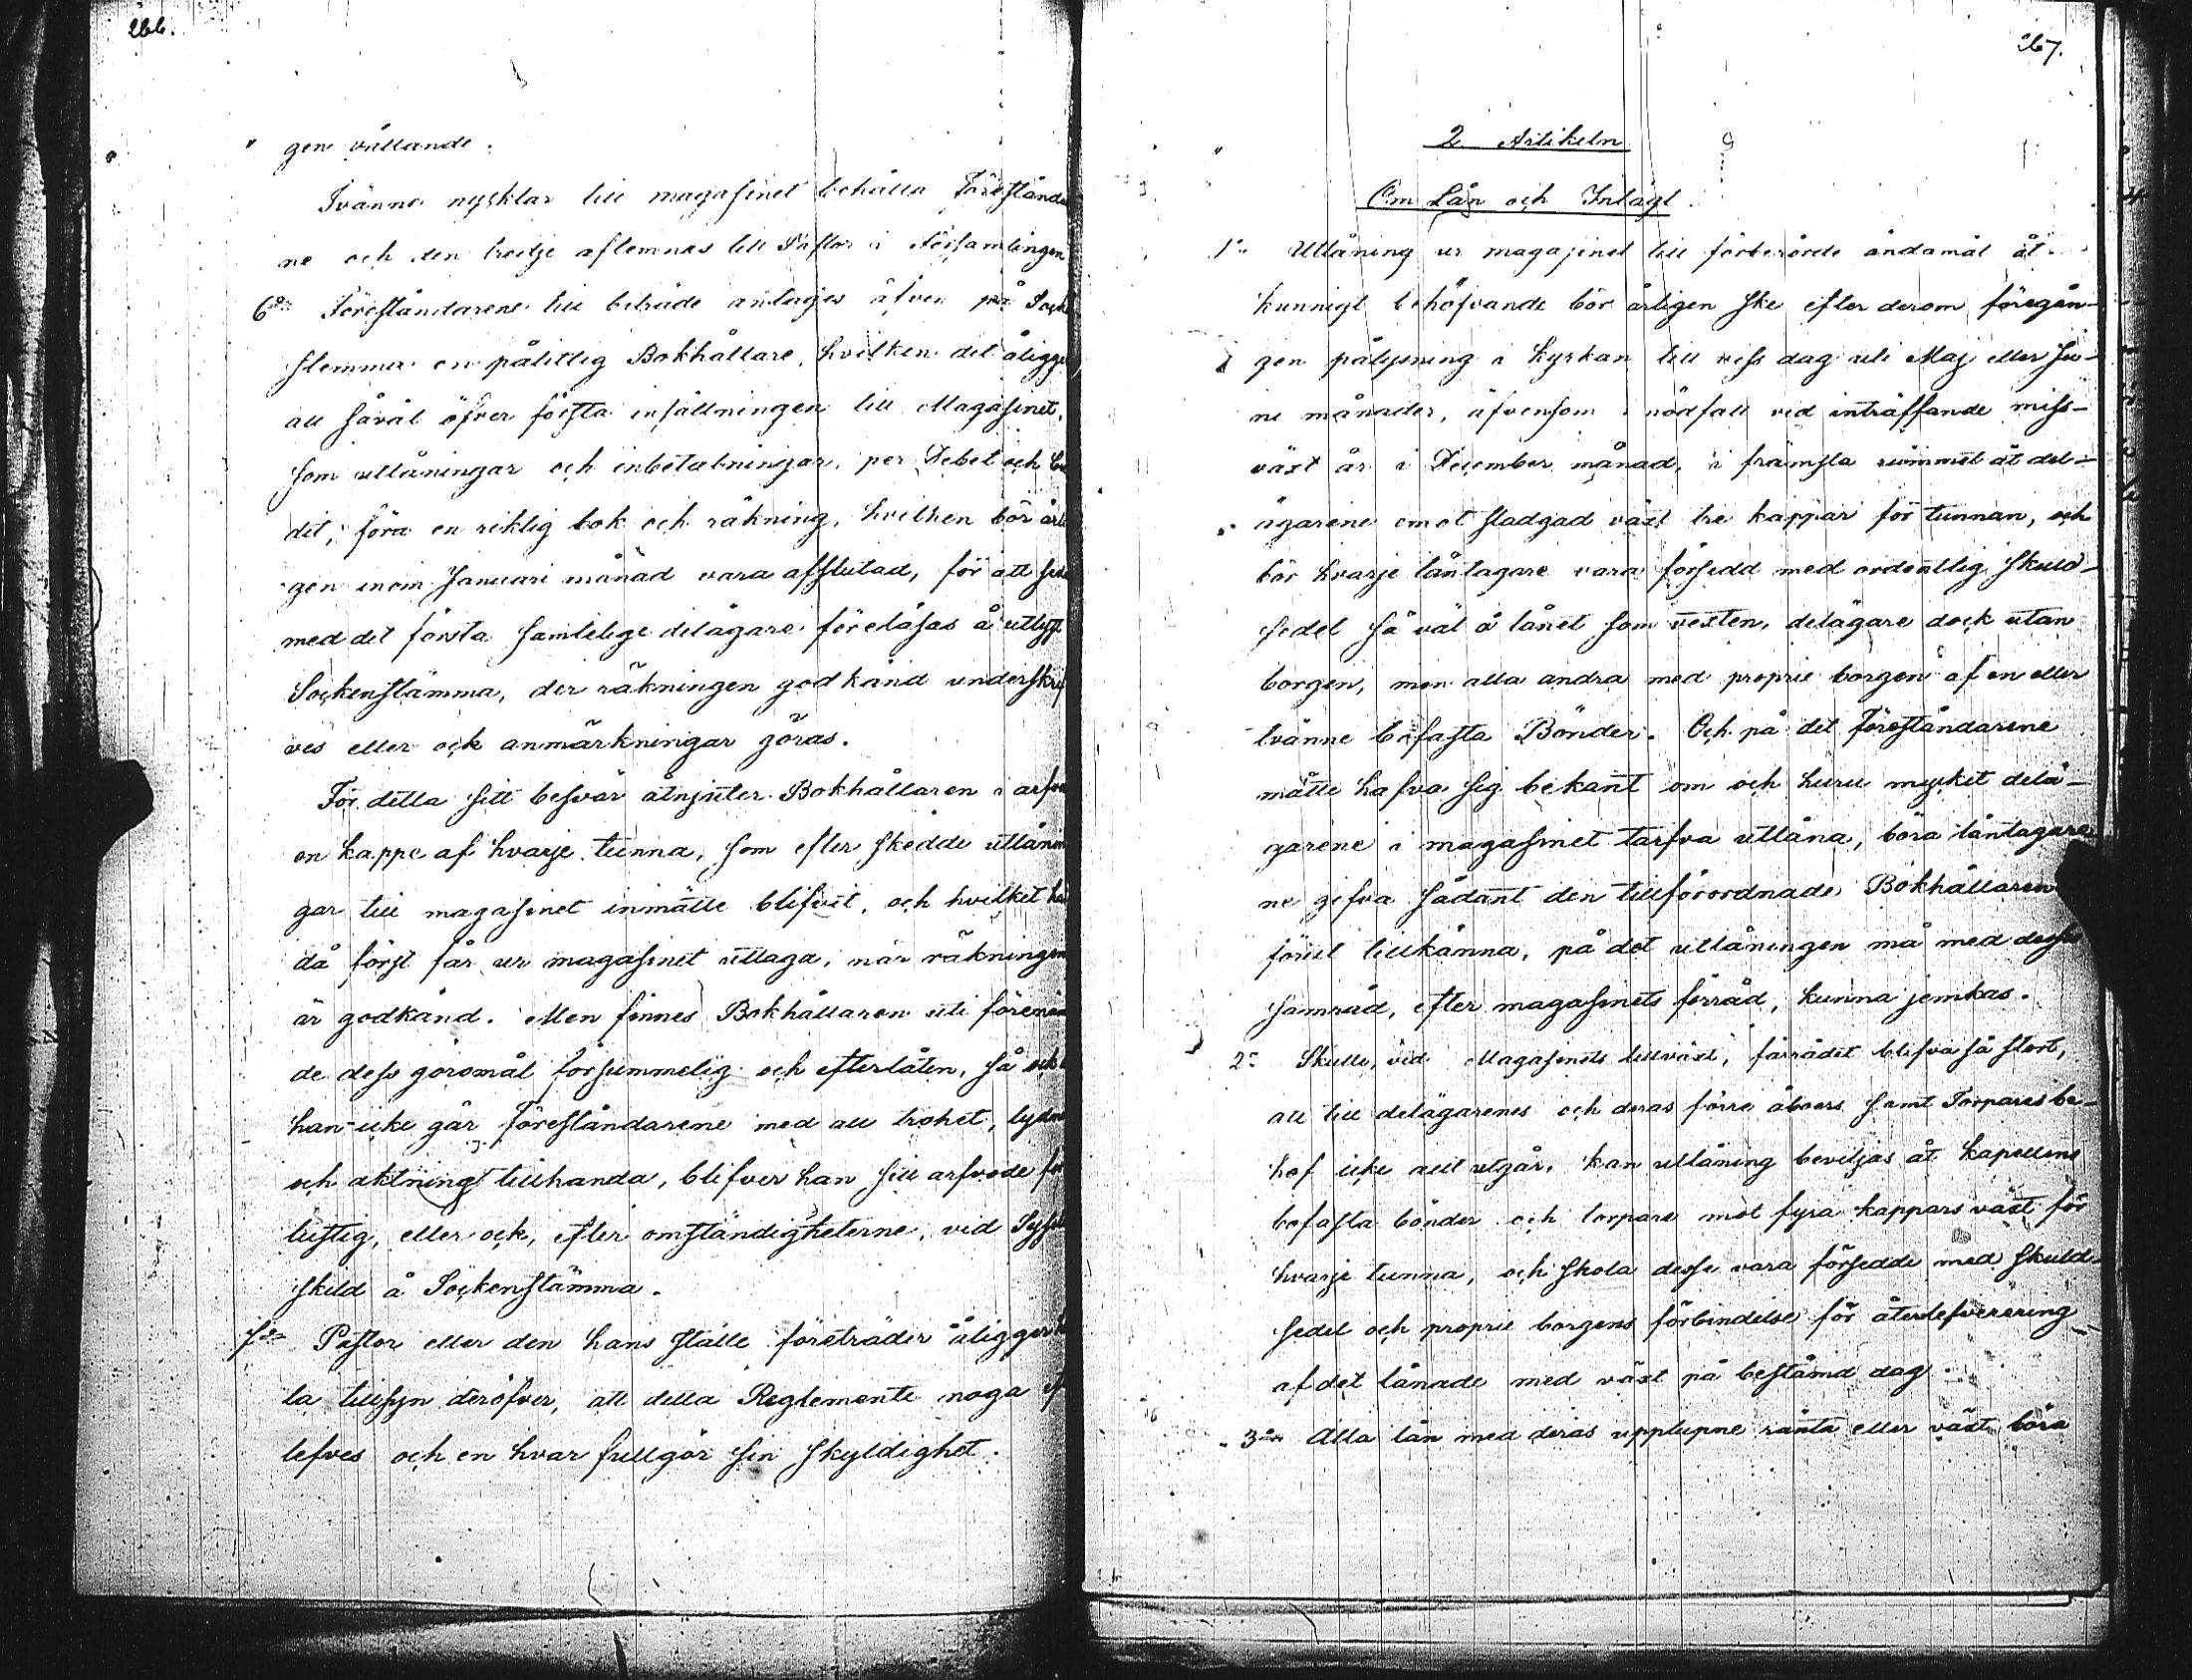 266.
gen vållande.
Tvänne nycklar till magasinet behålla Föreståndare
ne och den tredje aflemnas till Pastor i Församlingen
6o Föreståndarene till beträde antages äfven på Socken
stemma en pålitlig Bokhållare, hvilken det åligger
att såväl öfver första insättningen till Magasinet,
som utlåningar och inbetalningar, per Debet och Cre
dit, föra en riktig bok och räkning, hvilken bör årli
gen inom Januari månad vara afslutad, för att
med det första samtelige delägare föreläsas å utlyst
Sockenstämma, der räkningen godkänd underskrif
ves eller ock anmärkningar göras.
För detta sitt besvär åtnjuter Bokhållaren i arfvo
en kappe af hvarje tunna, som efter skedde utlånin
gar till magasinet inmätte blifvit, och hvilket han
då först får ur magasinet uttaga, när räkningen
är godkänd. Men finnes Bokhållaren uti förenäm
de dess göromål försummelig och efterlåten, så ock
han icke går Föreståndarene med all trohet, lydno
och aktning tillhanda, blifver han sitt arfvode för
lustig, eller ock, efter omständigheterne, vid Syssla
skild å Sockenstämma.
7o Pastor eller den hans ställe företräder åligger
la tillsyn deröfver, att detta Reglemente noga ef
lefves och en hvar fullgör sin skyldighet.
267.
2 Artikeln
Om Lån och Intägt
1o Utlåning ur magasinet till förberörde ändamål åt
kunnigt behöfvande bör årligen ske efter derom föregån-
gen pålysning i kyrkan till viss dag uti Maj eller Ju-
ni månader, äfvensom i nödfall vid inträffande miss-
växt år i December månad, i främsta rummet åt del-
ägarene emot stadgad växt tre kappar för tunnan, och
bör hvarje låntagare vara försedd med ordentlig skuld-
sedel så väl å lånet som vexten, delägare dock utan
borgen, men alla andra med proprie borgen af en eller
tvänne bofasta Bönder. Och på det Föreståndarene
måtte hafva sig bekant om och huru mycket delä-
garene i magasinet tarfva utlåna, böra låntagare
ne gifva sådant den tillförordnade Bokhållaren
förut tillkänna, på det utlåningen må med dess
samråd, efter magasinets förråd, kunna jemkas.
2o Skulle, vid Magasinets tillväxt, förrådet blifva så stort,
att till delägarenes och deras förre åboers samt Torpares be-
hof icke allt utgår, kan utlåning beviljas åt Kapellens
bofasta bönder och torpare mot fyra kappars växt för
hvarje tunna, och skola desse vara försedde med skuld-
sedel och proprie borgens förbindelse för återlefverering
af det lånade med växt på bestämd dag.
3o Alla lån med deras upplupne ränta eller växt böra